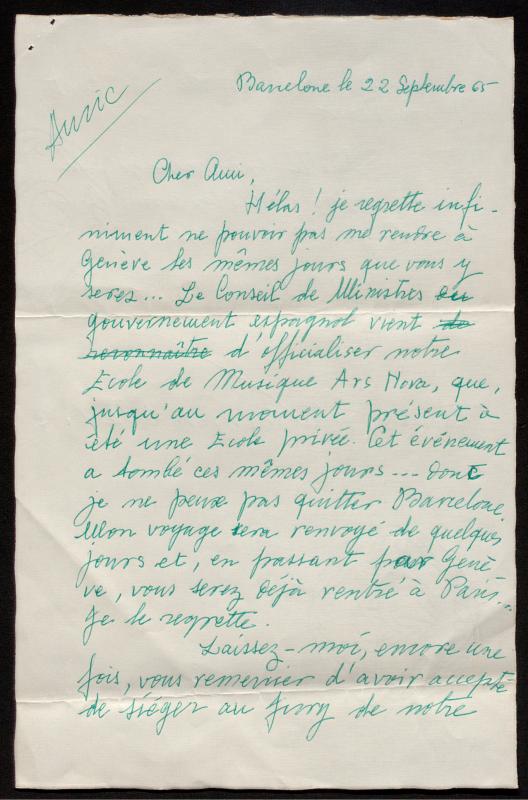 Auric
Barcelone le 22 Septembre 65
Cher Ami,
Hélas ! je regrette infi-
niment ne pouvoir pas me rendre à
Genève les mêmes jours que vous y
serez... Le Conseil de Ministres
gouvernement espagnol vient de
reconnaître d'officialiser notre
Ecole de Musique Ars Nova, que,
jusqu'au moment présent à
été une Ecole privée. Cet événement
a tombé ces mêmes jours... donc
je ne peux pas quitter Barcelone.
Mon voyage sera renvoyé de quelques
jours et, en passant par Genè
ve, vous serez déjà rentré à Paris...
Je le regrette.
Laissez-moi, encore une
fois, vous remercier d'avoir accepté
de siéger au Jury de notre